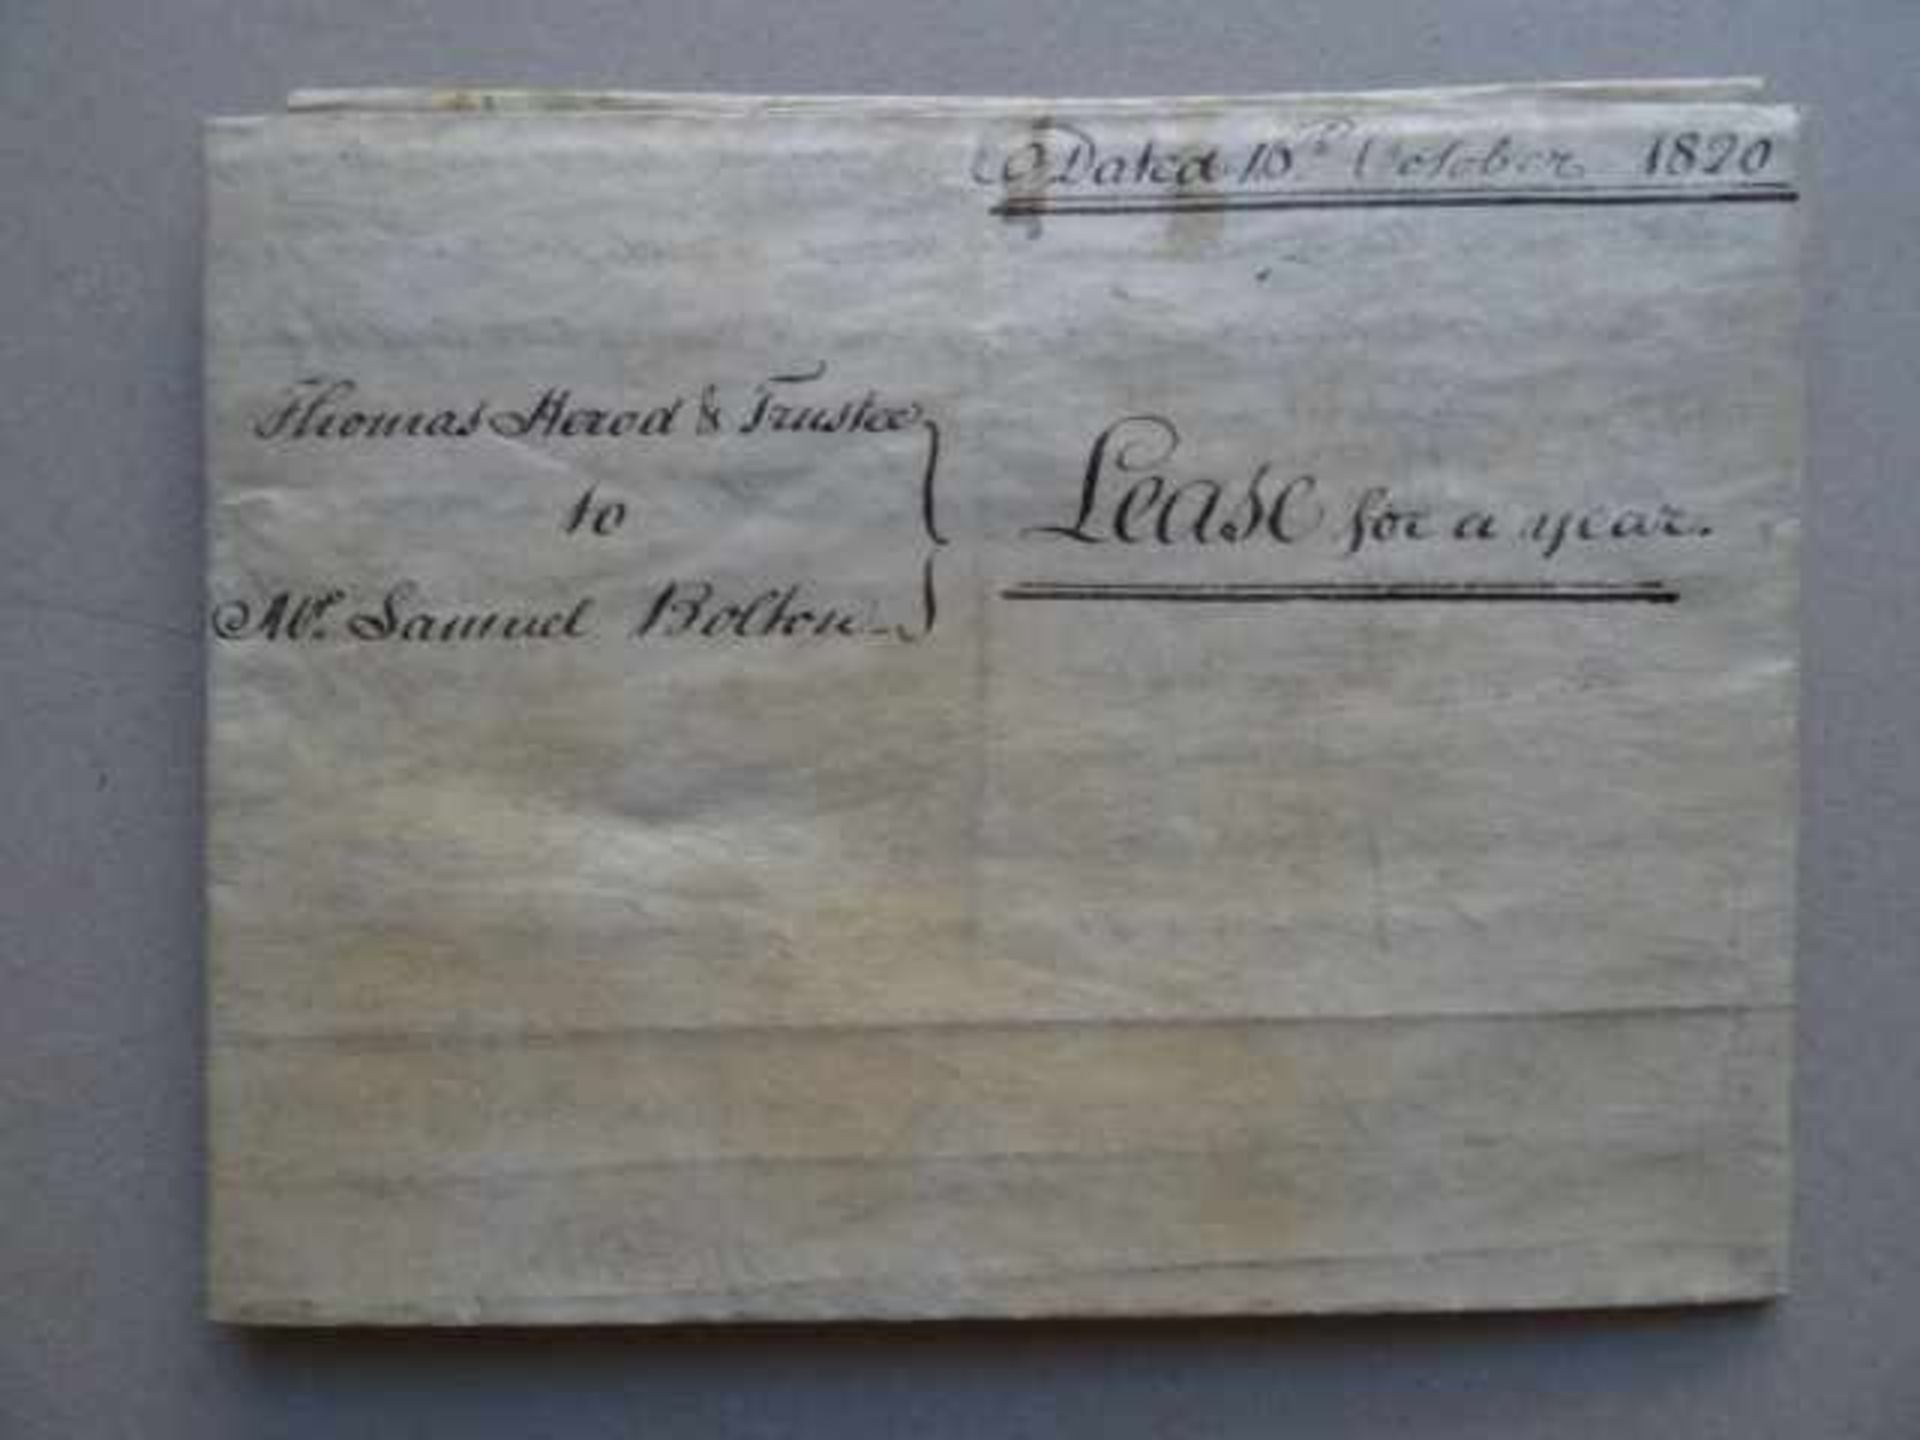 Dated 10th October 1820
Thomas Herod & Trustee
to
Mr. Samuel Bolton
Lease for a year.